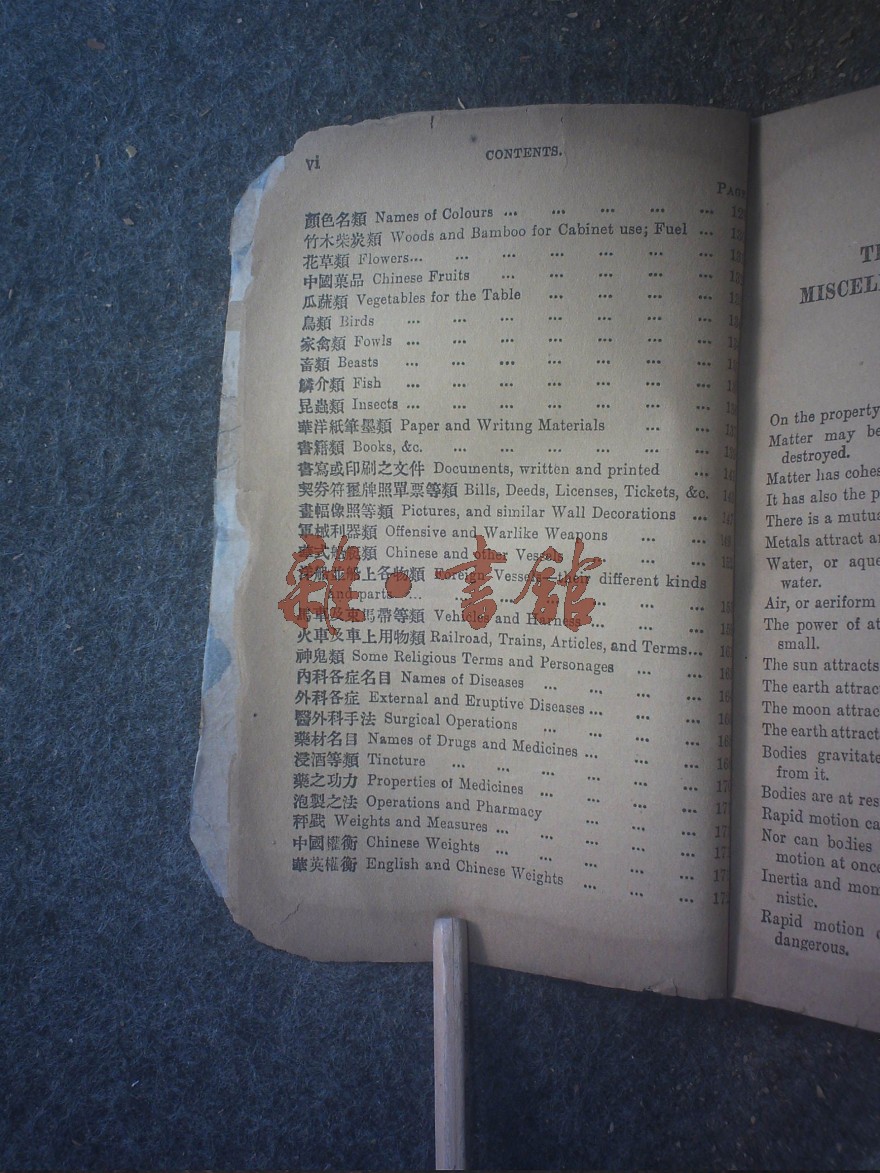 vi CONTENTS.
PAGE
顏色名類 Names of Colours ... ... ... ... ...
竹木柴炭類 Woods and Bamboo for Cabinet use; Fuel ...
花草類 Flowers... ... ... ... ... ... ...
中國菓品 Chinese Fruits ... ... ... ... ...
瓜蔬類 Vegetables for the Table ... ... ... ...
鳥類 Birds ... ... ... ... ... ... ...
家禽類 Fowls ... ... ... ... ... ... ...
畜類 Beasts ... ... ... ... ... ... ...
鱗介類 Fish ... ... ... ... ... ... ...
昆蟲類 Insects ... ... ... ... ... ... ...
華洋紙筆墨類 Paper and Writing Materials ... ...
書籍類 Books, &c. ... ... ... ... ... ...
書寫或印刷之文件 Documents, written and printed ...
契券符璽牌照單票等類 Bills, Deeds, Licenses, Tickets, &c.
畫幅像照等類 Pictures, and similar Wall Decorations ...
軍械利器類 Offensive and Warlike Weapons ... ...
華式船艇類 Chinese and other Vessels ... ...
船上各物類 Foreign Vessels—their different kinds
and parts ... ... ... ... ... ... ...
馬車及車馬帶等類 Vehicles and Harness ... ... ...
火車及車上用物類 Railroad, Trains, Articles, and Terms...
神鬼類 Some Religious Terms and Personages ... ...
內科各症名目 Names of Diseases ... ... ... ...
外科各症 External and Eruptive Diseases ... ... ...
醫外科手法 Surgical Operations ... ... ... ...
藥材名目 Names of Drugs and Medicines ... ... ...
浸酒等類 Tincture ... ... ... ... ... ...
藥之功力 Properties of Medicines ... ... ... ...
泡製之法 Operations and Pharmacy ... ... ...
秤戥 Weights and Measures ... ... ... ... ...
中國權衡 Chinese Weights ... ... ... ... ...
華英權衡 English and Chinese Weights ... ... ...
雜·書館
MISCEL
On the property
Matter may be
destroyed.
Matter has cohes
It has also the p
There is a mutua
Metals attract an
Water, or aque
water.
Air, or aeriform
The power of at
small.
The sun attracts
The earth attrac
The moon attrac
The earth attract
Bodies gravitate
from it.
Bodies are at res
Rapid motion ca
Nor can bodies
motion at once
Inertia and mom
nistic.
Rapid motion
dangerous.